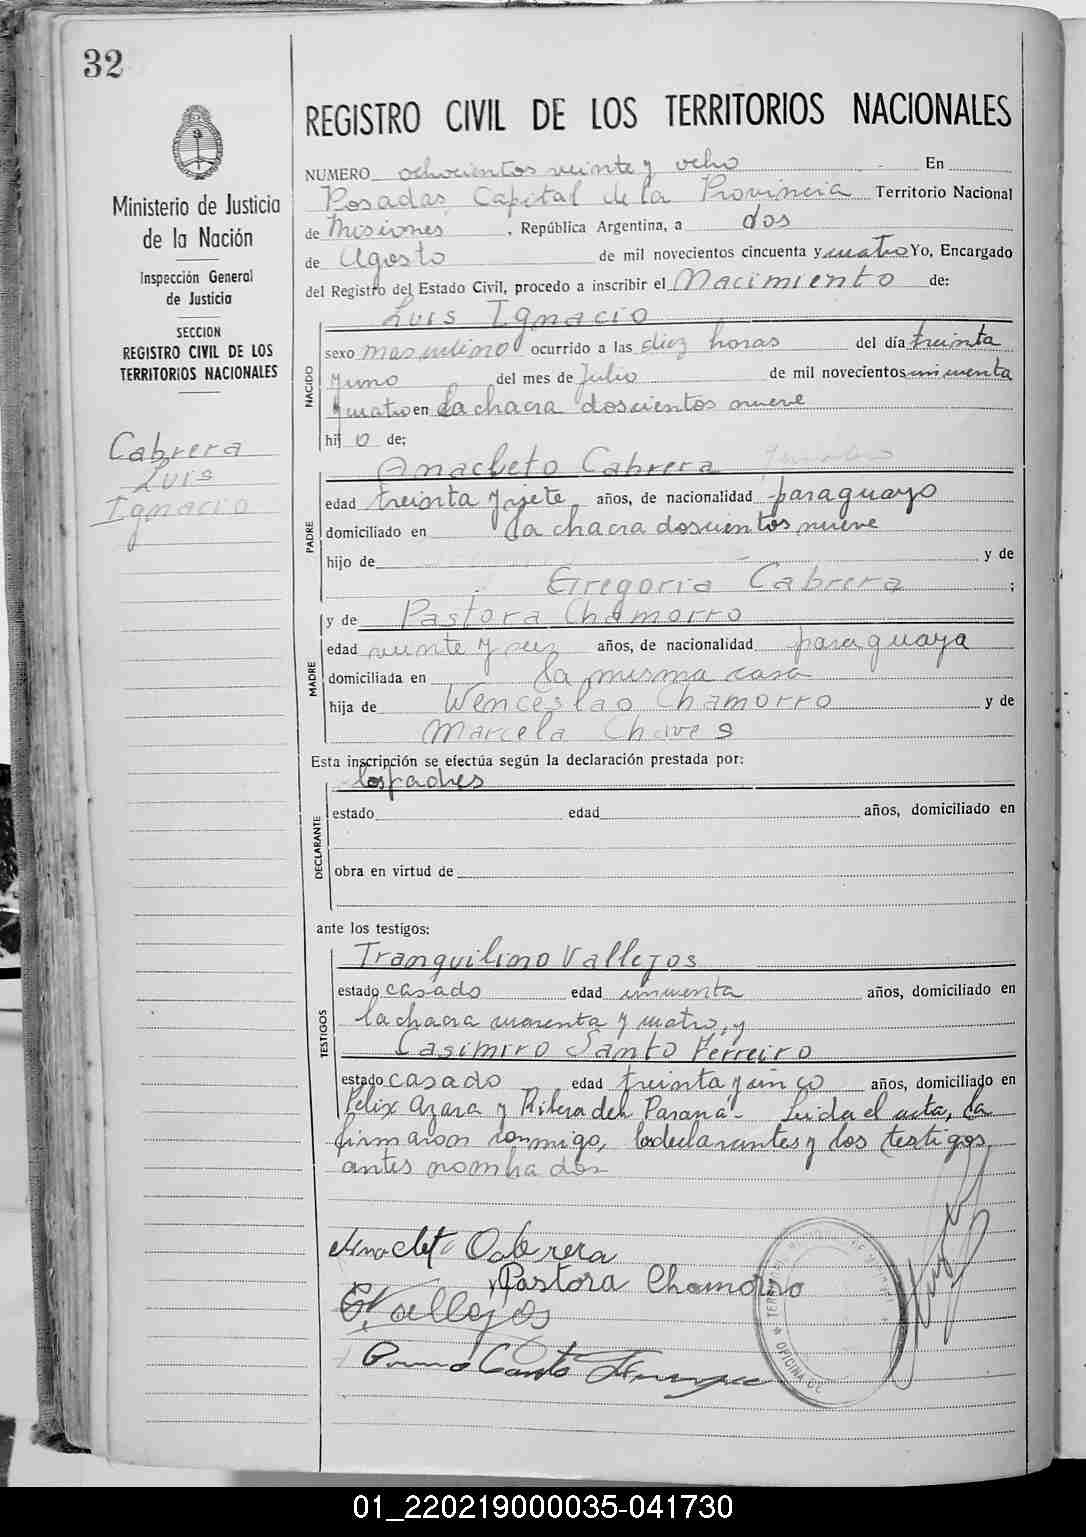 32
Ministerio de Justicia
de la Nación
Inspección General
de Justicia
SECCION
REGISTRO CIVIL DE LOS
TERRITORIOS NACIONALES
Cabrera
Luis
Ignacio
REGISTRO CIVIL DE LOS TERRITORIOS NACIONALES
NUMERO ochocientos veinte y ocho En
Posadas, Capital de la Provincia Territorio Nacional
de Misiones, República Argentina, a dos
de Agosto de mil novecientos cincuenta y cuatro Yo, Encargado
del Registro del Estado Civil, procedo a inscribir el Nacimiento de:
Luis Ignacio
NACIDO
sexo masculino ocurrido a las diez horas del día treinta
y uno del mes de Julio de mil novecientos cincuenta
y cuatro en la chacra doscientos nueve
hijo de;
Anacleto Cabrera
PADRE
edad treinta y siete años, de nacionalidad paraguayo
domiciliado en la chacra doscientos nueve
hijo de y de
Gregoria Cabrera ;
y de Pastora Chamorro
MADRE
edad veinte y seis años, de nacionalidad paraguaya
domiciliada en la misma casa
hija de Wenceslao Chamorro y de
Marcela Chaves
Esta inscripción se efectúa según la declaración prestada por:
los padres
DECLARANTE
estado edad años, domiciliado en
obra en virtud de
ante los testigos:
Tranquilino Vallejos
TESTIGOS
estado casado edad cincuenta años, domiciliado en
la chacra cuarenta y cuatro, y
Casimiro Santo Ferreiro
estado casado edad treinta y cinco años, domiciliado en
Felix Azara y Ribera del Paraná- Leida el acta, la
firmaron conmigo, los declarantes y los testigos
antes nombrados
Anacleto Cabrera
Pastora Chamorro
Vallejos
OFICINA DE
01_220219000035-041730